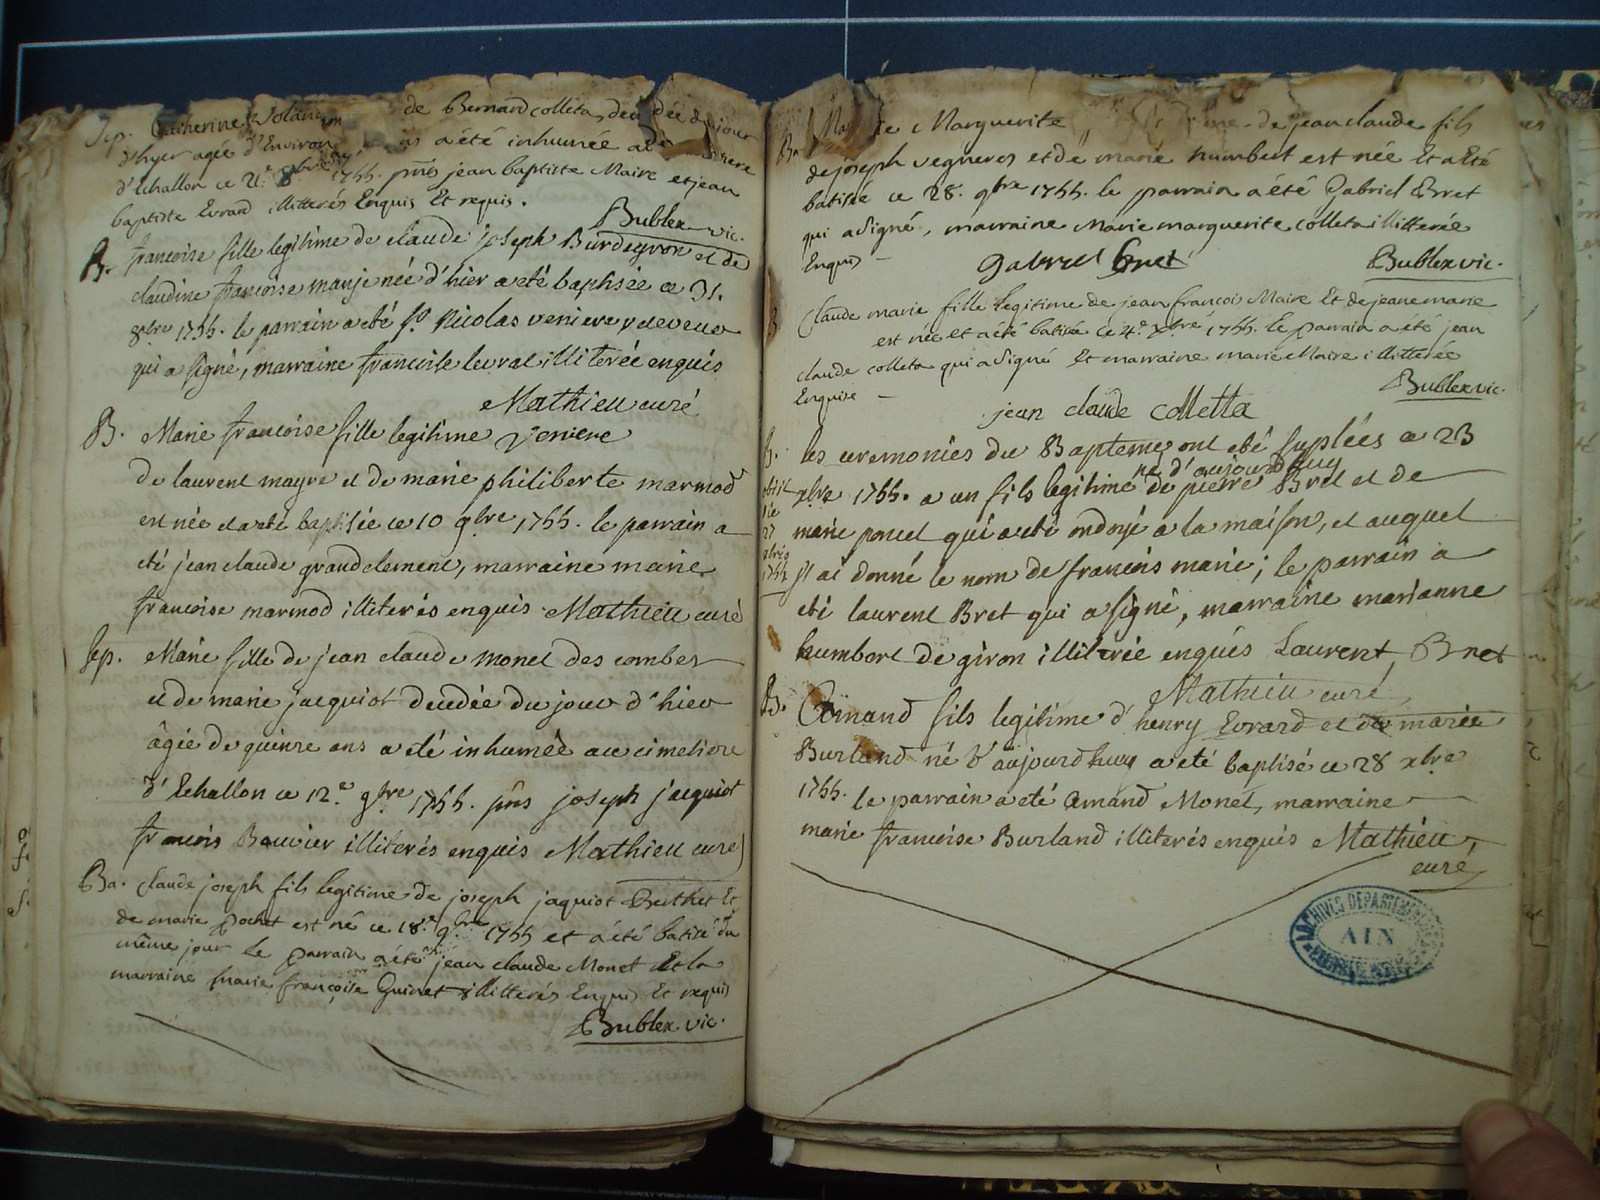 Sep. Catherine de Bernard colleta
d'hyer agée d'Environ ans a été inhumée
d'Echallon ce 21. 8bre 1755. pnts jean baptiste Maire et jean
baptiste Evrard illitterés Enquis Et requis.
Bublex vic.
B. francoise fille legitime de claude joseph Burdeyron et de
claudine francoise manje née d'hier a eté baptisée ce 31.
8bre 1755. le parrain a eté Nicolas
qui a signé, marraine francoise levrat illiterée enquis
Mathieu curé
B. Marie francoise fille legitime
de laurent mayre et de marie philiberte marmod
est née et a eté baptisée ce 10 9bre 1755. le parrain a
eté jean claude grandclement, marraine marie
francoise marmod illiterés enquis Mathieu curé
Sep. Marie fille de jean claude monet des combes
et de marie jacquiot decedée du jour d'hier
âgée de quinze ans a eté inhumée au cimetiere
d'Echallon ce 12.e 9bre 1755. pnts joseph jacquiot
francois Bouvier illiterés enquis Mathieu curé
Ba. Claude joseph fils legitime de joseph jaquiot Berthet Et
de marie pochet est né ce 18.e 9bre 1755 et a été batisé du
même jour le parrain a été jean claude Monet Et la
marraine marie françoise Guinet illitterés Enquis Et requis
Bublex. vic.
Ba Marguerite de jean claude fils
de joseph vegneres et de marie humbert est née Et a Eté
batisée ce 28. 9bre 1755. le parrain a été Gabriel Bret
qui a signé, marraine Marie marguerite colleta illitterée
Enquis
Gabriel Bret Bublex vic.
B. Claude marie fille legitime de jean francois Maire Et de jeane marie
est née et a été batisée ce 4.e xbre 1755. le parrain a été jean
claude colleta qui a signé Et marraine marie Maire illitterée
Enquise Bublex vic.
jean claude colletta
B. les ceremonies du Bapteme ont eté suplées ce 23
né d'aujourdhuy
xbre 1755. a un fils legitime de pierre Bret et de
marie poncet qui a eté ondoyé a la maison, et auquel
27
xbre
1755
j'ai donné le nom de francois marie; le parrain a
eté laurent Bret qui a signé, marraine marianne
humbert de giron illiterée enquis Laurent Bret
Mathieu curé
B. Amand fils legitime d'henry Evrard et de marie
Burland né d'aujourdhuy a eté baptisé ce 28 xbre
1755. le parrain a eté Amand Monet, marraine
marie francoise Burland illiterés enquis Mathieu,
curé
ARCHIVES DEPARTEMENTALES
AIN